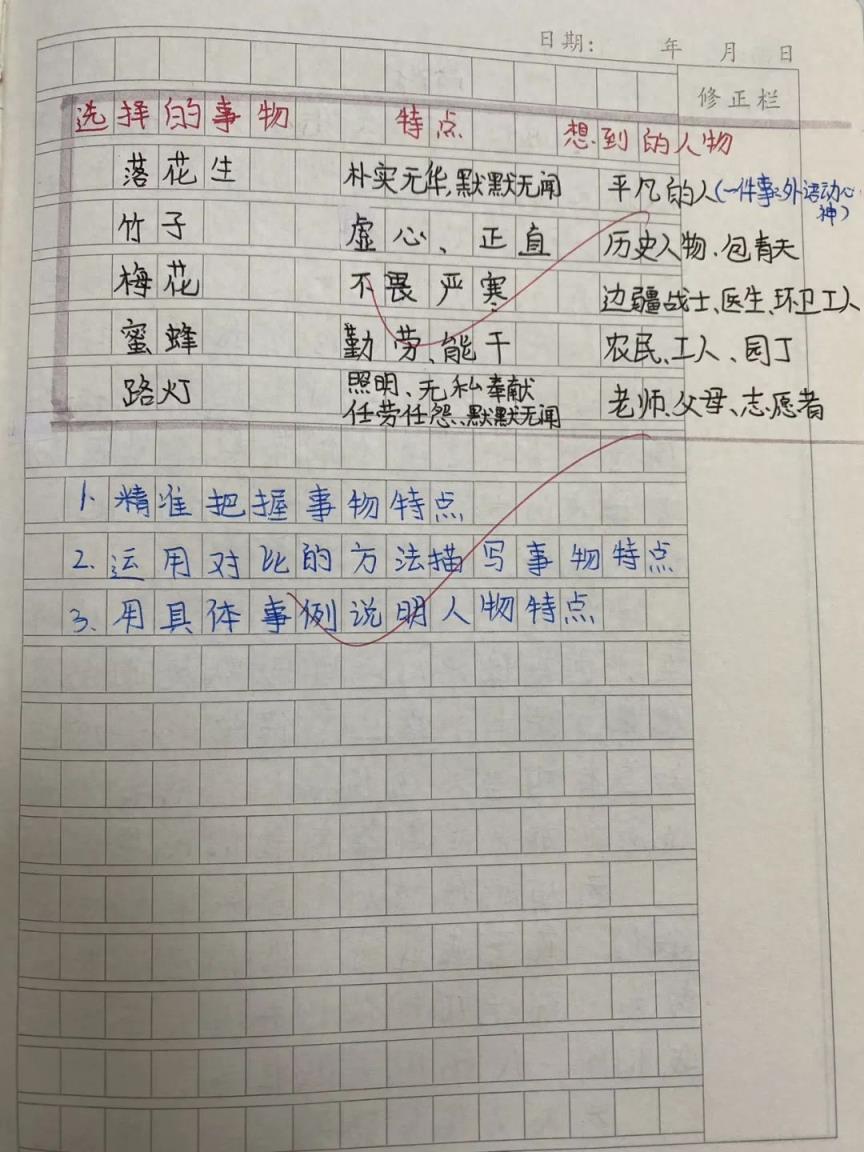 日期： 年 月 日
修正栏
选择的事物 特点 想到的人物
落花生 朴实无华,默默无闻 平凡的人(一件事:外语动心神)
竹子 虚心、正直 历史人物、包青天
梅花 不畏严寒 边疆战士、医生、环卫工人
蜜蜂 勤劳、能干 农民、工人、园丁
路灯 照明、无私奉献 老师、父母、志愿者
任劳任怨、默默无闻
1. 精准把握事物特点
2. 运用对比的方法描写事物特点
3. 用具体事例说明人物特点